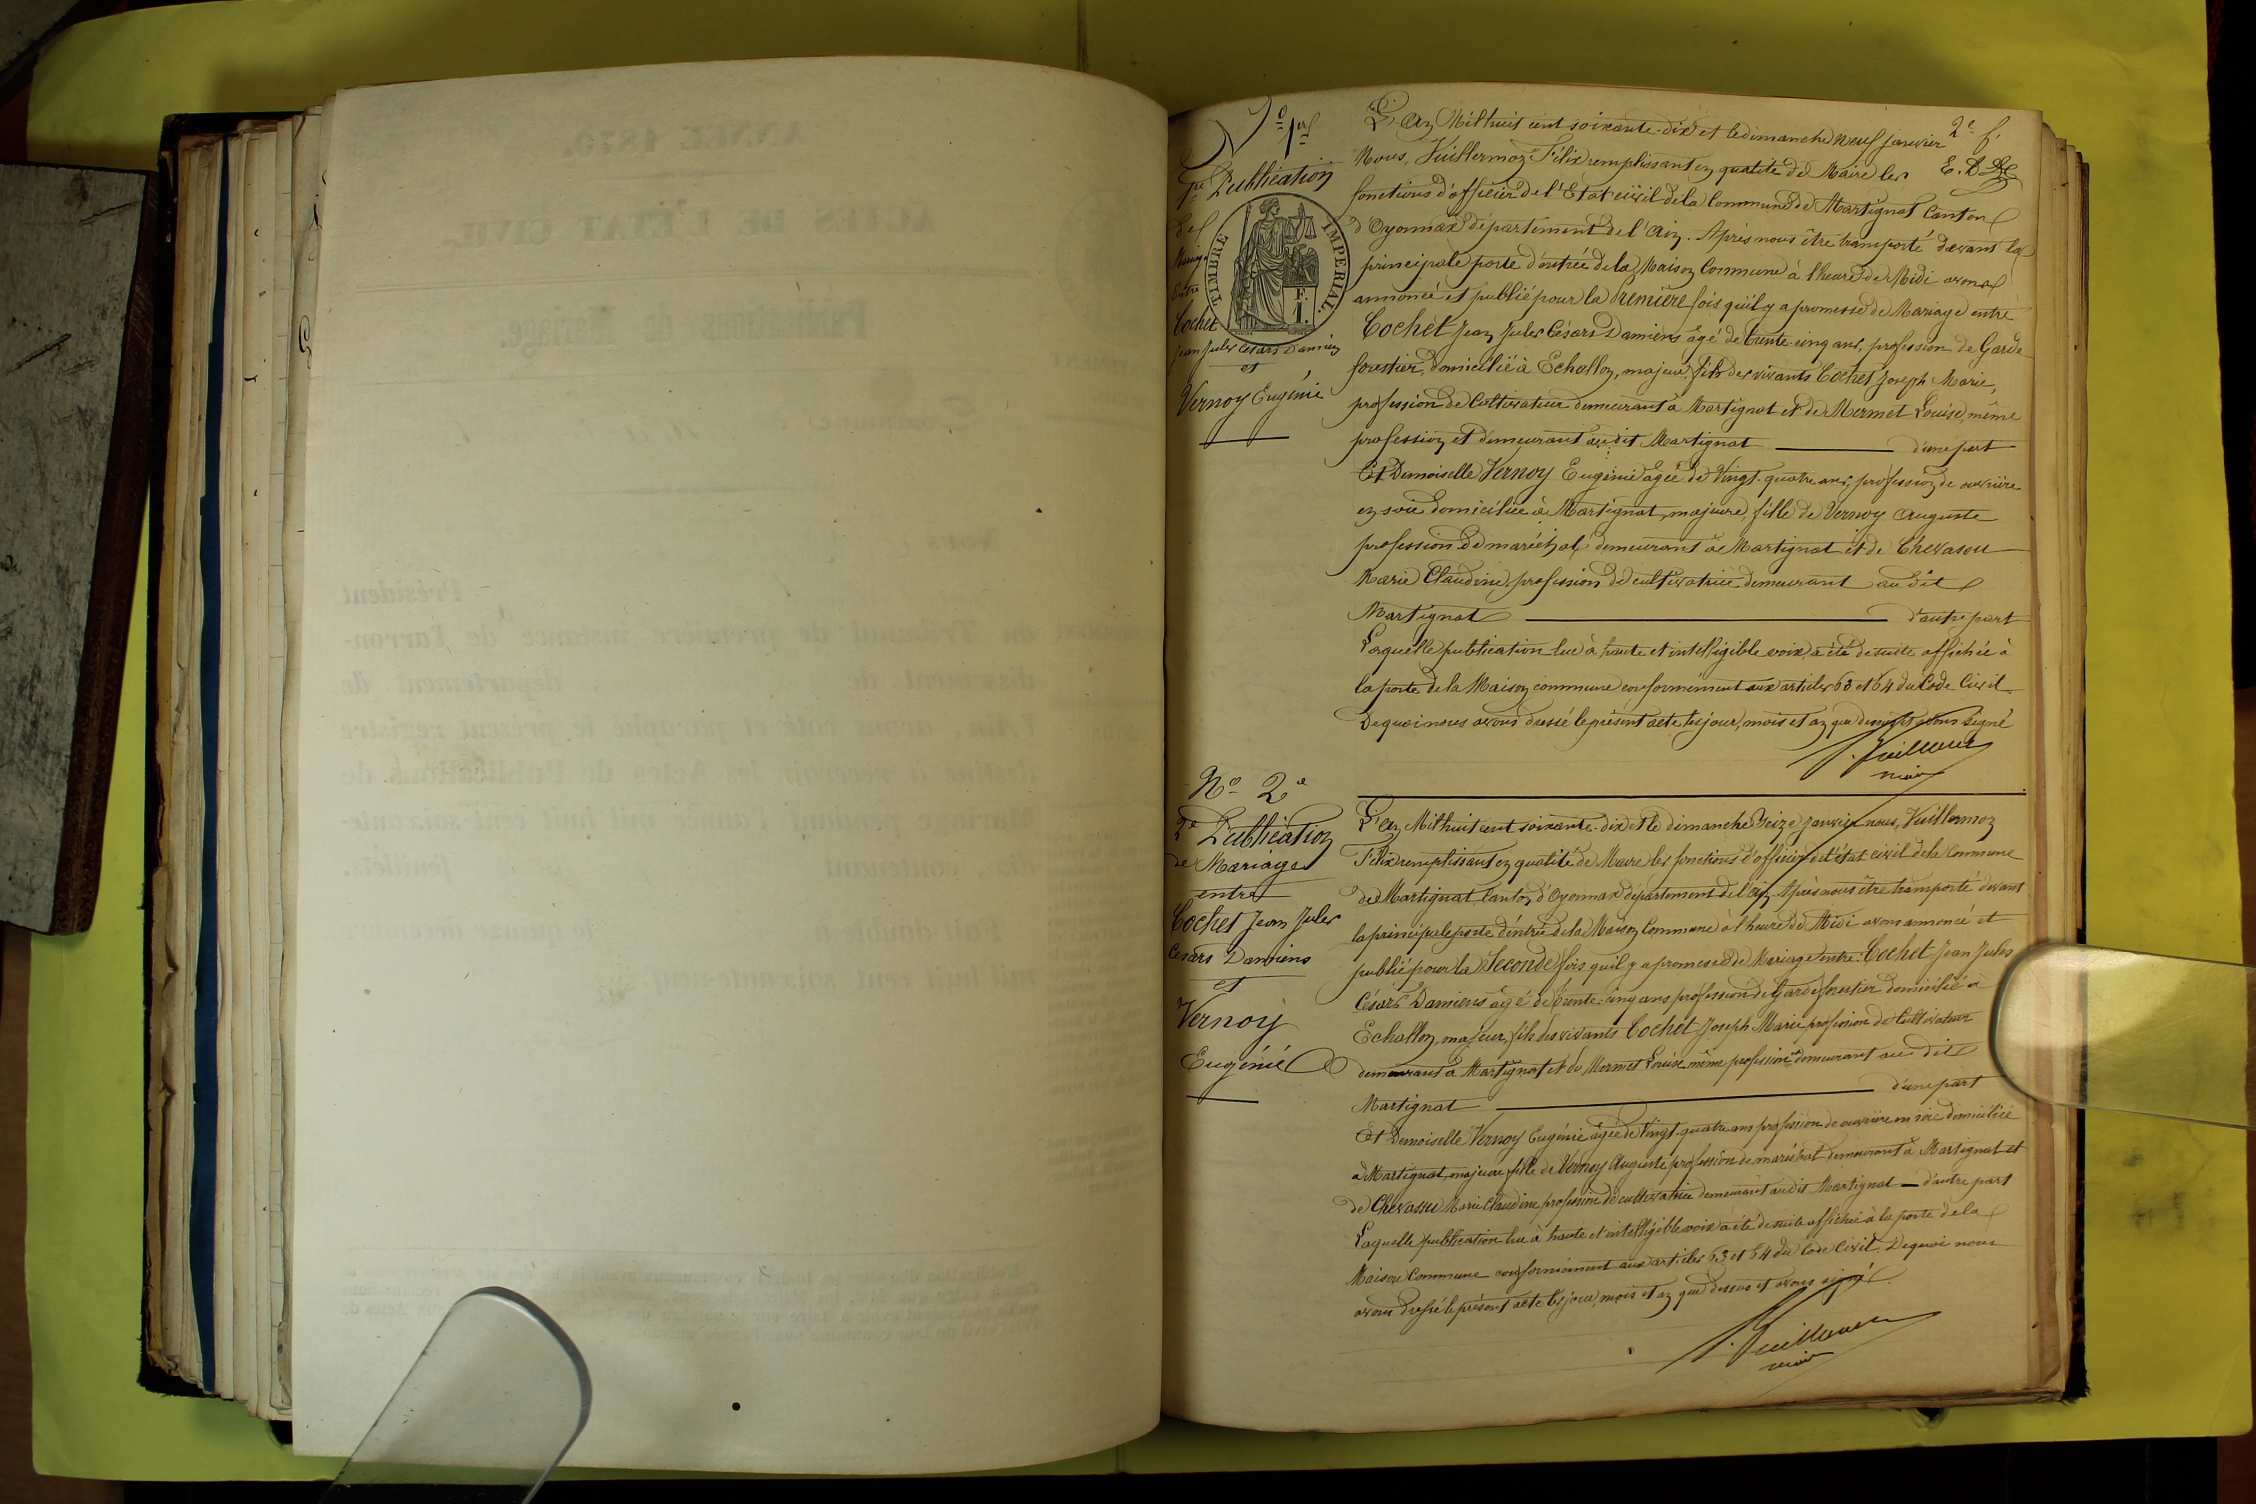 N° 1er
1re Publication
de
Mariage
Entre
Cochet
Jean Jules Césars Damiens
et
Vernoy Eugénie
TIMBRE IMPERIAL.
F.
1.
2e f.
L'an Mil huit cent soixante-dix et le dimanche neuf janvier
Nous, Vuillermoz Félix remplissant en qualité de Maire les
fonctions d'officier de l'Etat civil de la Commune de Martignat Canton
d'Oyonnax département de l'Ain. Après nous être transporté devant la
principale porte d'entrée de la Maison Commune à l'heure de Midi avons
annoncé et publié pour la Première fois qu'il y a promesse de Mariage entre
Cochet Jean Jules Césars Damiens âgé de trente-cinq ans, profession de Garde
forestier, domicilié à Echallon, majeur, fils des vivants Cochet Joseph Marie,
profession de Cultivateur demeurant à Martignat et de Mermet Louise, même
profession et demeurant audit Martignat d'une part
Et Demoiselle Vernoy Eugénie âgée de Vingt-quatre ans, profession de ouvrière
en soie domiciliée à Martignat, majeure, fille de Vernoy Auguste
profession de maréchal demeurant à Martignat et de Chevasou
Marie Claudine, profession de cultivatrice demeurant au dit
Martignat d'autre part
Laquelle publication lue à haute et intelligible voix, a été de suite affichée à
la porte de la Maison commune conformément aux articles 63 et 64 du Code Civil.
De quoi nous avons dressé le présent acte les jour, mois et an que dessus et avons signé
maire
N° 2e
2e Publication
de Mariage
entre
Cochet Jean Jules
Césars Damiens
et
Vernoy
Eugénie
L'an Mil huit cent soixante-dix et le dimanche Seize janvier nous, Vuillermoz
Félix remplissant en qualité de Maire les fonctions d'officier de l'état civil de la Commune
de Martignat Canton d'Oyonnax département de l'Ain. Après nous être transporté devant
la principale porte d'entrée de la Maison Commune à l'heure de Midi avons annoncé et
publié pour la Seconde fois qu'il y a promesse de Mariage entre: Cochet Jean Jules
Césars Damiens âgé de trente-cinq ans profession de Garde forestier domicilié à
Echallon, majeur, fils des vivants Cochet Joseph Marie profession de Cultivateur
demeurant à Martignat et de Mermet Louise même profession demeurant au dit
Martignat d'une part
Et Demoiselle Vernoy Eugénie âgée de Vingt-quatre ans profession de ouvrière en soie domiciliée
à Martignat, majeure fille de Vernoy Auguste profession de maréchal demeurant à Martignat et
de Chevassu Marie Claudine profession de cultivatrice demeurant audit Martignat d'autre part
Laquelle publication lue à haute et intelligible voix a été de suite affichée à la porte de la
Maison Commune conformément aux articles 63 et 64 du Code Civil. De quoi nous
avons dressé le présent acte les jour, mois et an que dessus et avons signé
maire